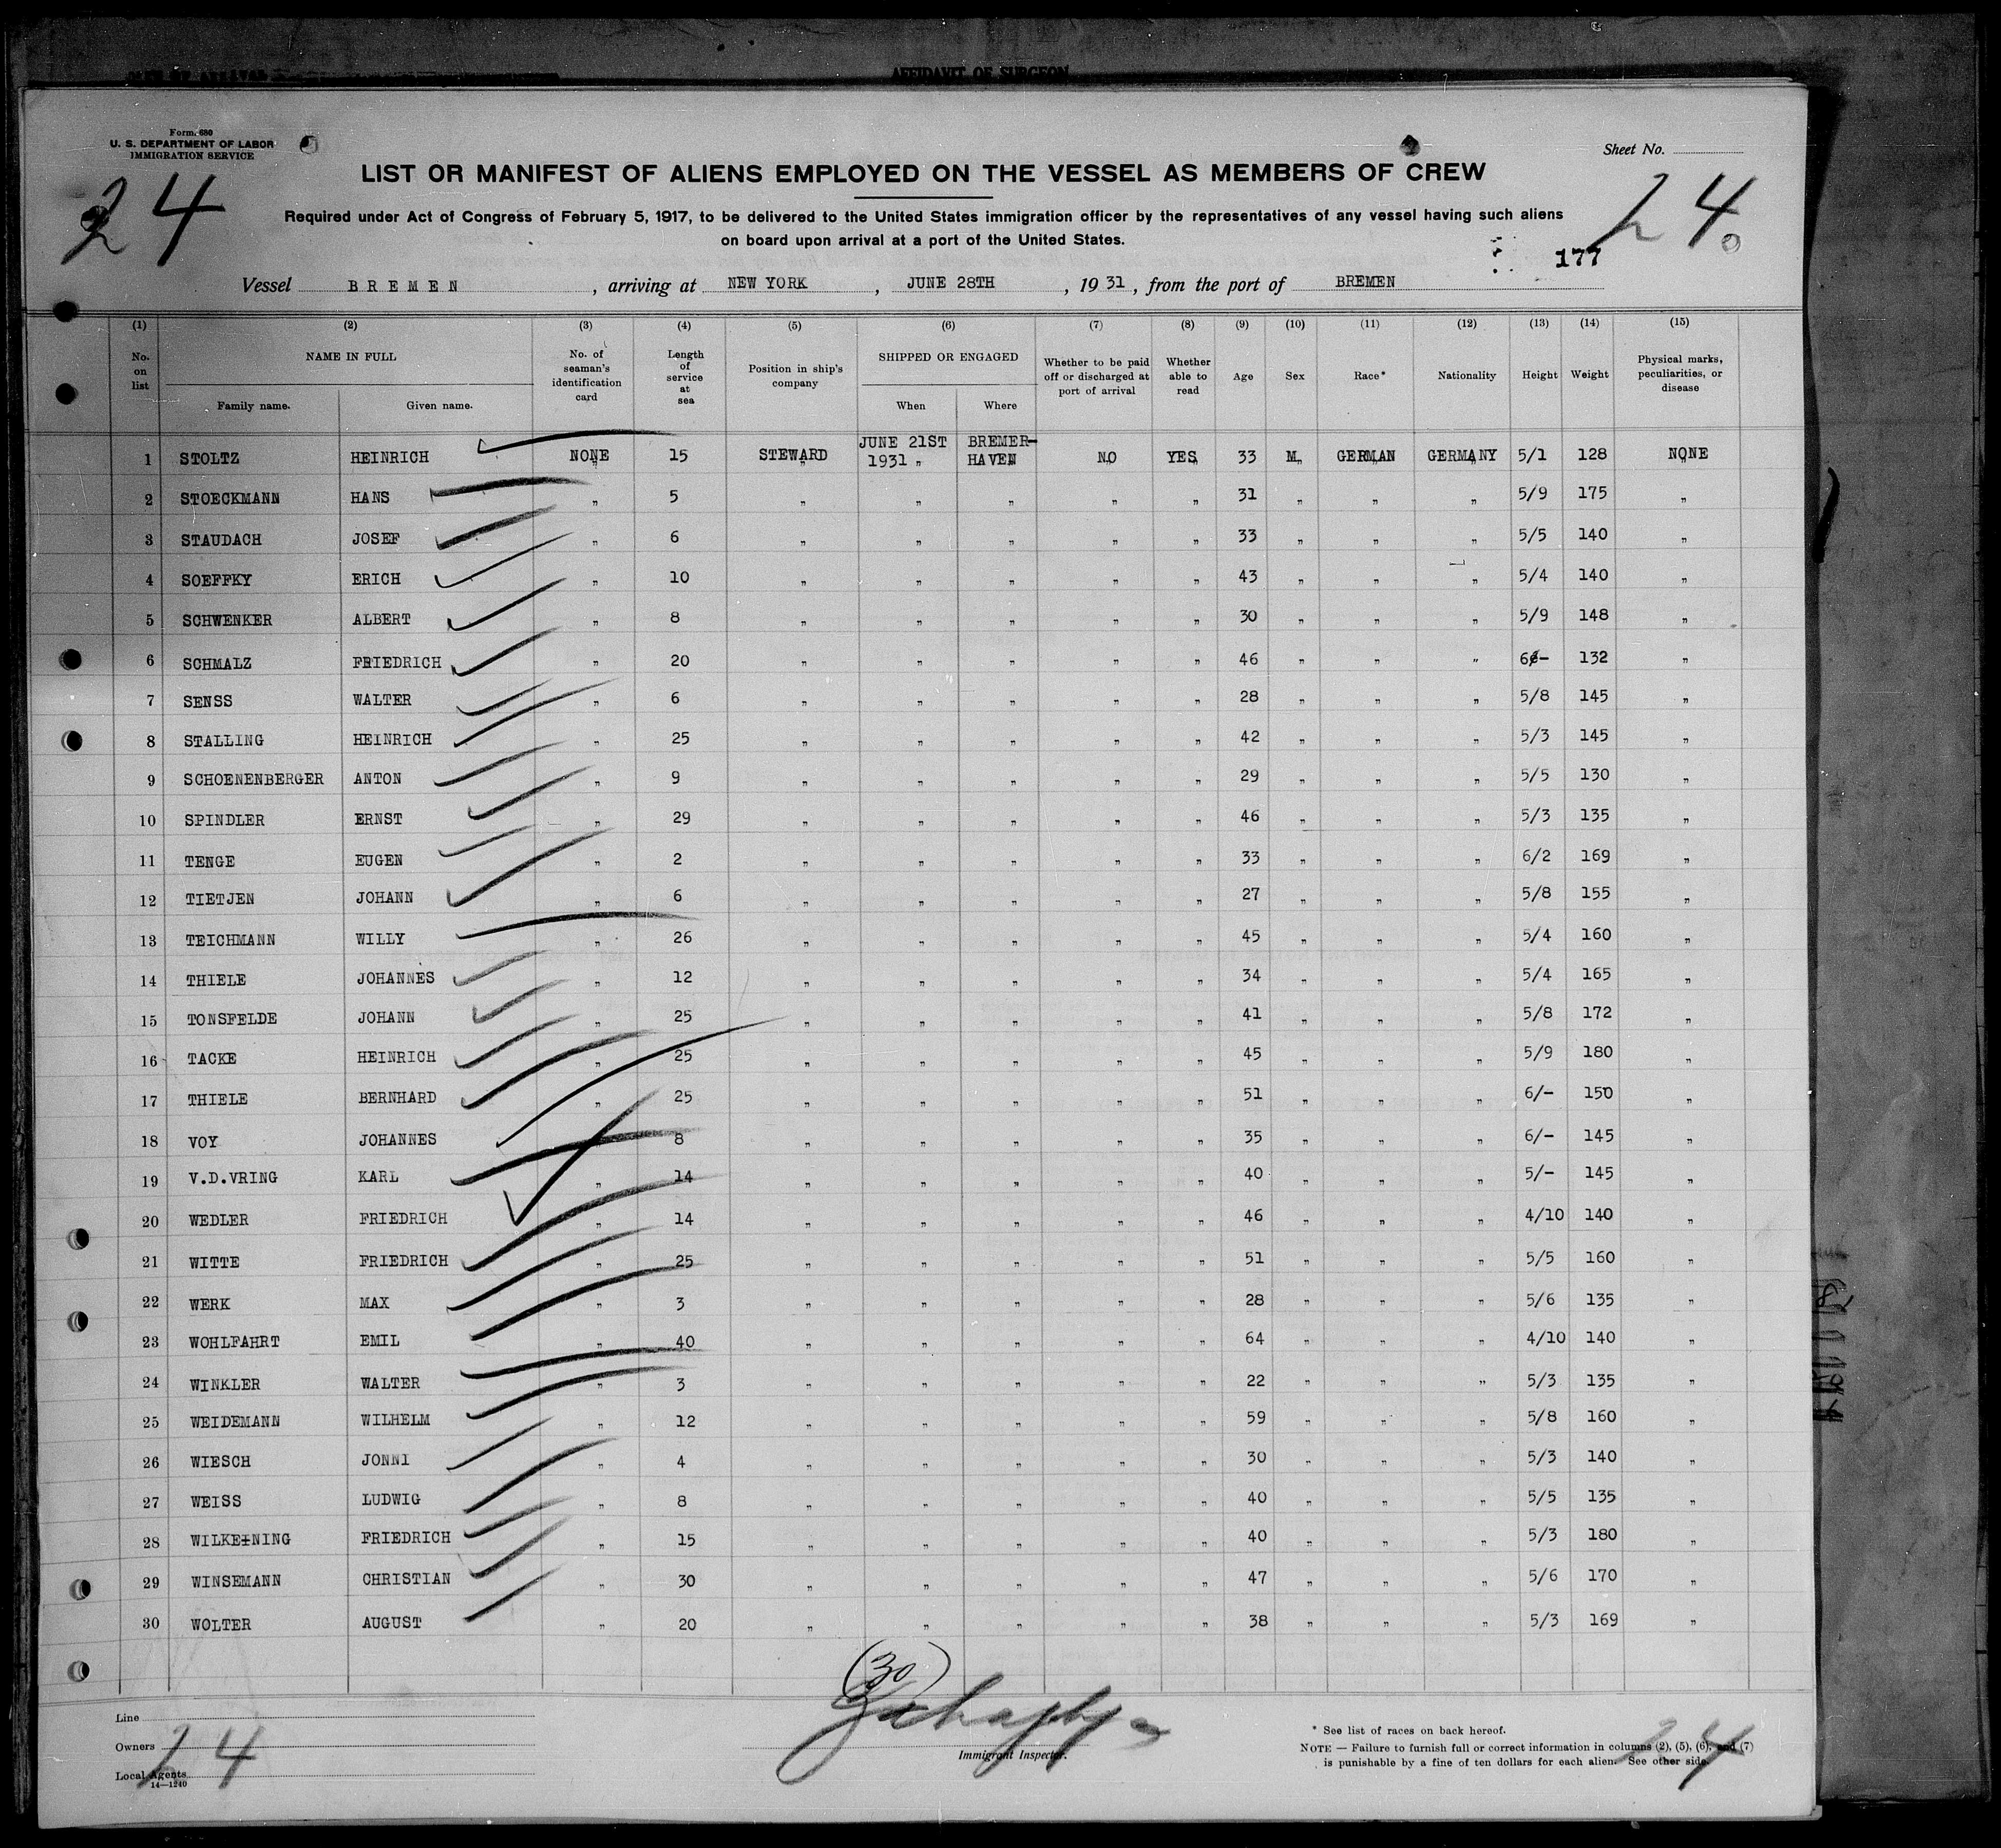 AFFIDAVIT OF SURGEON
Form 680
U. S. DEPARTMENT OF LABOR
IMMIGRATION SERVICE
Sheet No.
LIST OR MANIFEST OF ALIENS EMPLOYED ON THE VESSEL AS MEMBERS OF CREW
24 24
Required under Act of Congress of February 5, 1917, to be delivered to the United States immigration officer by the representatives of any vessel having such aliens
on board upon arrival at a port of the United States.
177
Vessel BREMEN, arriving at NEW YORK, JUNE 28TH, 1931, from the port of BREMEN
(1) (2) (3) (4) (5) (6) (7) (8) (9) (10) (11) (12) (13) (14) (15)
No. on list NAME IN FULL Family name. Given name. No. of seaman's identification card Length of service at sea Position in ship's company SHIPPED OR ENGAGED When Where Whether to be paid off or discharged at port of arrival Whether able to read Age Sex Race* Nationality Height Weight Physical marks, peculiarities, or disease
1 STOLTZ HEINRICH NONE 15 STEWARD JUNE 21ST 1931 BREMER-HAVEN NO YES 33 M GERMAN GERMANY 5/1 128 NONE
2 STOECKMANN HANS " 5 " " " " " 31 " " " 5/9 175 "
3 STAUDACH JOSEF " 6 " " " " " 33 " " " 5/5 140 "
4 SOEFFKY ERICH " 10 " " " " " 43 " " " 5/4 140 "
5 SCHWENKER ALBERT " 8 " " " " " 30 " " " 5/9 148 "
6 SCHMALZ FRIEDRICH " 20 " " " " " 46 " " " 6/- 132 "
7 SENSS WALTER " 6 " " " " " 28 " " " 5/8 145 "
8 STALLING HEINRICH " 25 " " " " " 42 " " " 5/3 145 "
9 SCHOENENBERGER ANTON " 9 " " " " " 29 " " " 5/5 130 "
10 SPINDLER ERNST " 29 " " " " " 46 " " " 5/3 135 "
11 TENGE EUGEN " 2 " " " " " 33 " " " 6/2 169 "
12 TIETJEN JOHANN " 6 " " " " " 27 " " " 5/8 155 "
13 TEICHMANN WILLY " 26 " " " " " 45 " " " 5/4 160 "
14 THIELE JOHANNES " 12 " " " " " 34 " " " 5/4 165 "
15 TONSFELDE JOHANN " 25 " " " " " 41 " " " 5/8 172 "
16 TACKE HEINRICH " 25 " " " " " 45 " " " 5/9 180 "
17 THIELE BERNHARD " 25 " " " " " 51 " " " 6/- 150 "
18 VOY JOHANNES " 8 " " " " " 35 " " " 6/- 145 "
19 V.D.VRING KARL " 14 " " " " " 40 " " " 5/- 145 "
20 WEDLER FRIEDRICH " 14 " " " " " 46 " " " 4/10 140 "
21 WITTE FRIEDRICH " 25 " " " " " 51 " " " 5/5 160 "
22 WERK MAX " 3 " " " " " 28 " " " 5/6 135 "
23 WOHLFAHRT EMIL " 40 " " " " " 64 " " " 4/10 140 "
24 WINKLER WALTER " 3 " " " " " 22 " " " 5/3 135 "
25 WEIDEMANN WILHELM " 12 " " " " " 59 " " " 5/8 160 "
26 WIESCH JONNI " 4 " " " " " 30 " " " 5/3 140 "
27 WEISS LUDWIG " 8 " " " " " 40 " " " 5/5 135 "
28 WILKENING FRIEDRICH " 15 " " " " " 40 " " " 5/3 180 "
29 WINSEMANN CHRISTIAN " 30 " " " " " 47 " " " 5/6 170 "
30 WOLTER AUGUST " 20 " " " " " 38 " " " 5/3 169 "
(30)
Line
Owners
Local Agents
14—1240
24
Immigrant Inspector.
* See list of races on back hereof.
NOTE — Failure to furnish full or correct information in columns (2), (5), (6), and (7)
is punishable by a fine of ten dollars for each alien. See other side.
24